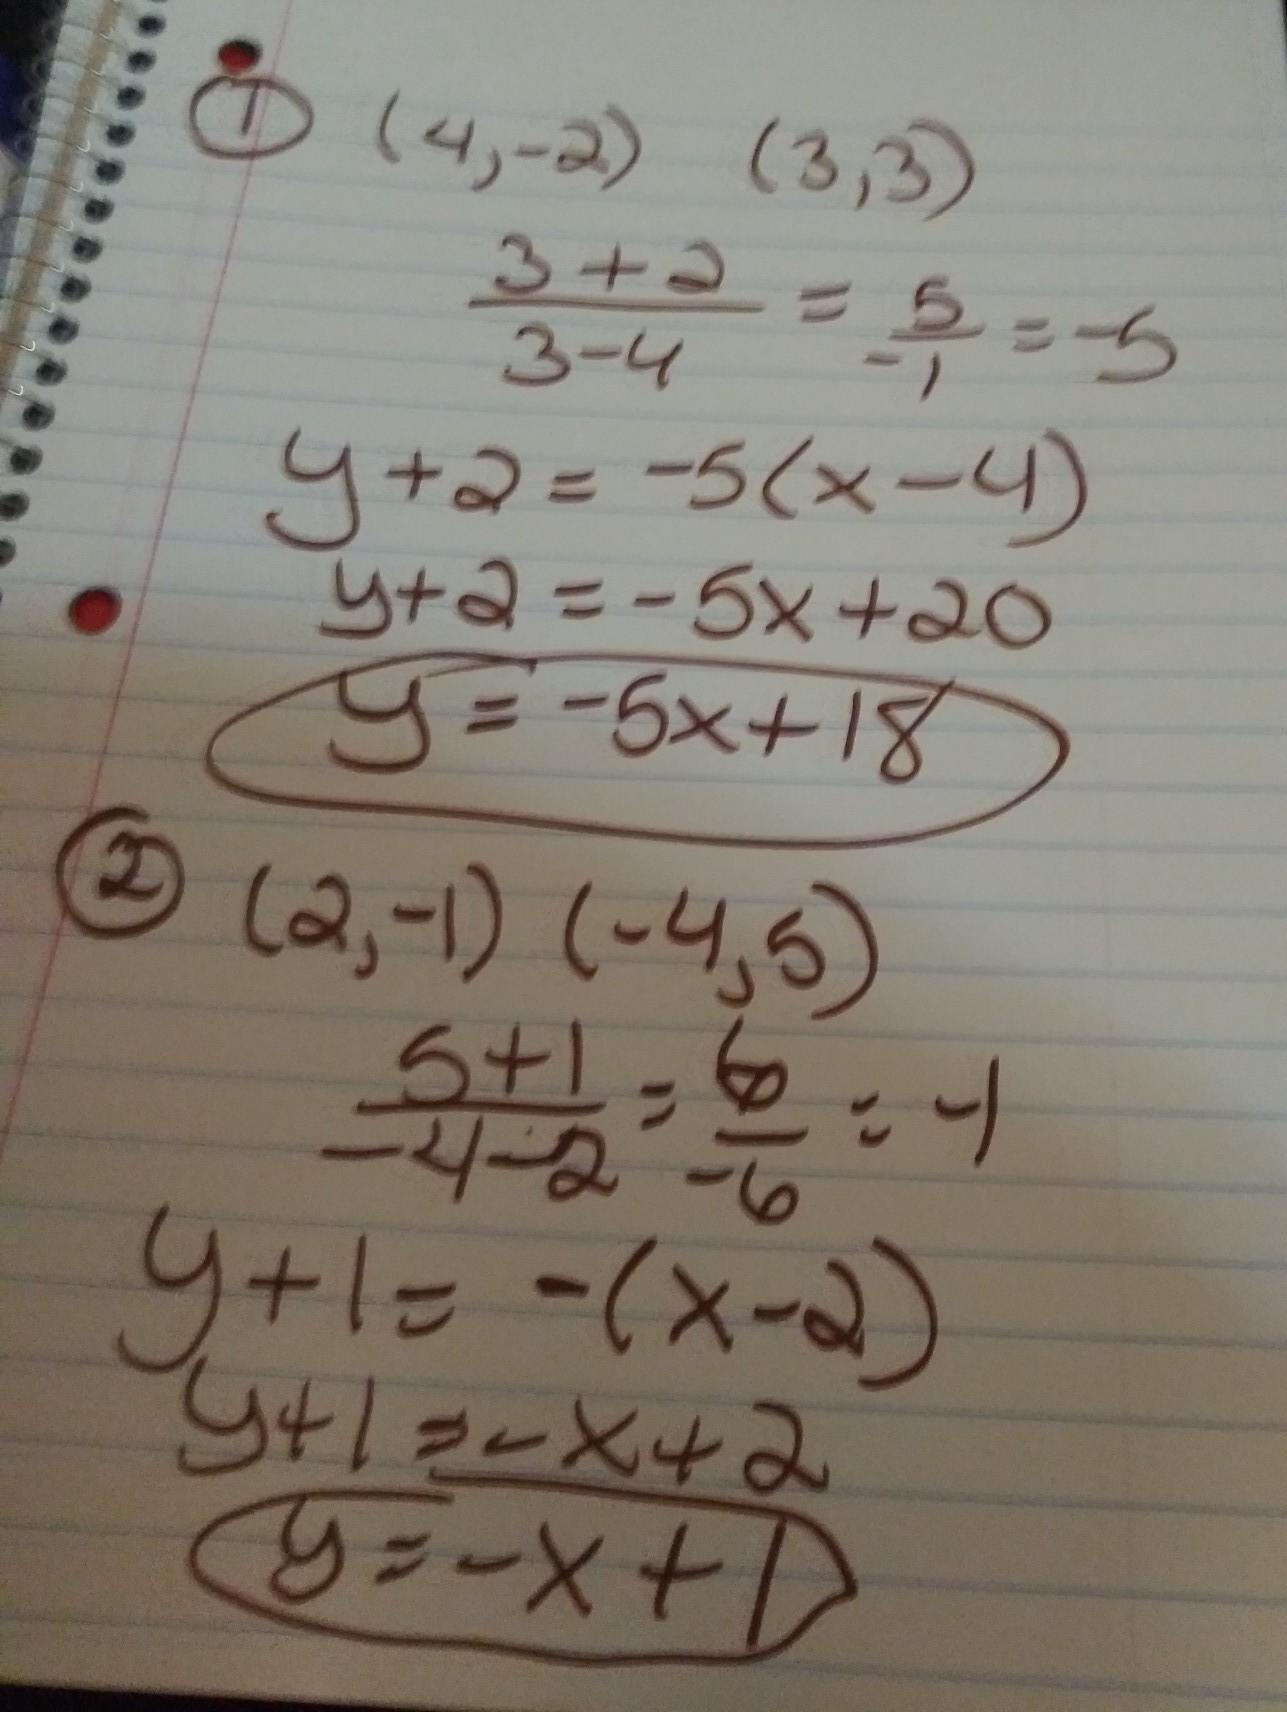 ① (4,-2) (3,3)
3+2
3-4 = 5/-1 = -5
y+2 = -5(x-4)
y+2 = -5x+20
y = -5x+18
② (2,-1) (-4,5)
5+1
-4-2 = 6/-6 = -1
y+1 = -(x-2)
y+1 = -x+2
y = -x+1